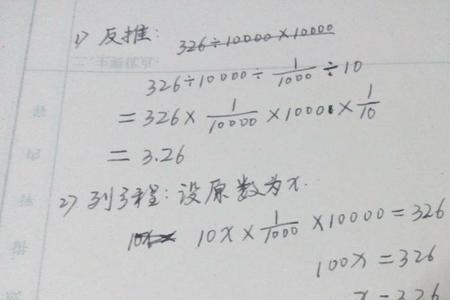 1) 反推: 326÷10000×10000
326÷10000÷1/1000÷10
=326×1/10000×1000×1/10
=3.26
2) 列方程: 设原数为x.
10x 10x×1/1000×10000=326
100x=326
x=3.26